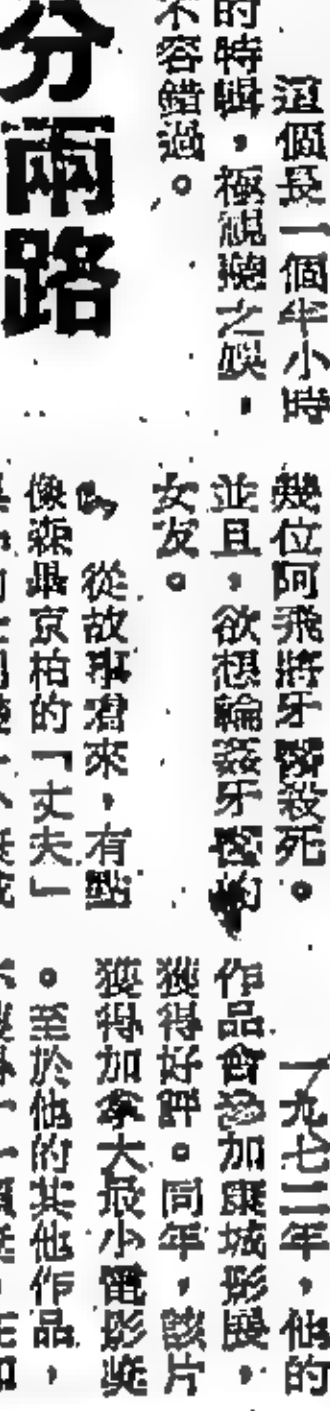 這個長一個半小時
的特輯,極視聽之娛,
不容錯過。
分兩路
幾位阿飛將牙醫殺死。
並且,欲想輪姦牙醫的
女友。
從故事看來,有點
像森畢京柏的「丈夫」
一九七二年,他的
作品曾參加康城影展,
獲得好評。同年,該片
獲得加拿大最小電影獎
。至於他的其他作品,